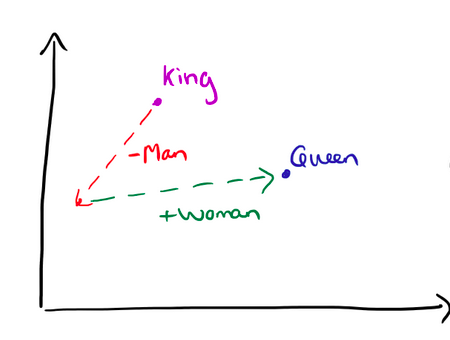 King
-Man
Queen
+Woman